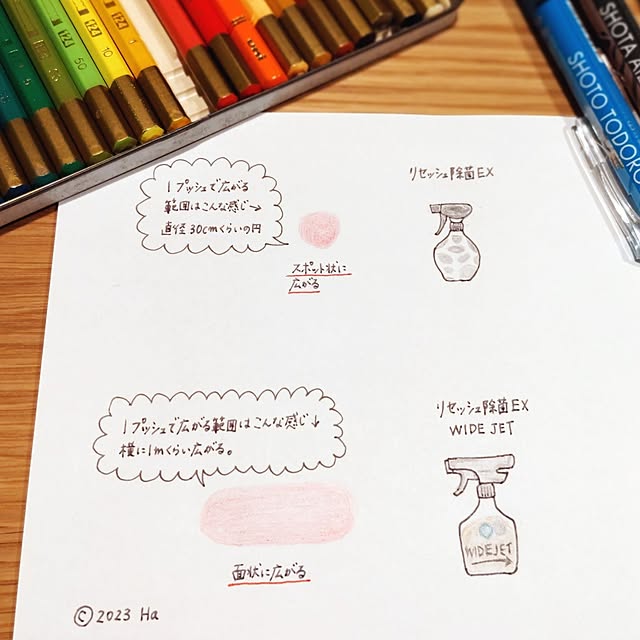 uni
10
50
SHOTO TODORO
SHOTA A
1プッシュで広がる
範囲はこんな感じ→
直径30cmくらいの円
リセッシュ除菌EX
スポット状に
広がる
1プッシュで広がる範囲はこんな感じ↓
横に1mくらい広がる。
リセッシュ除菌EX
WIDE JET
WIDEJET
面状に広がる
©2023 Ha